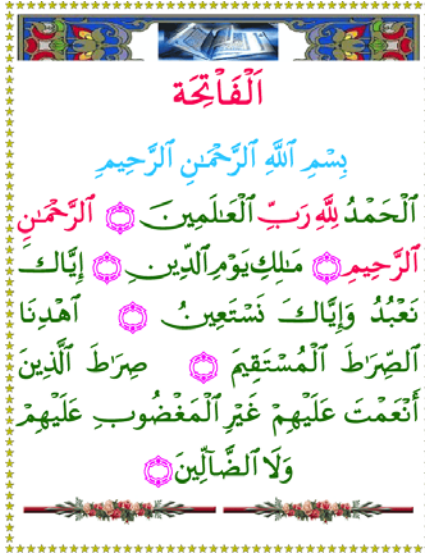 اَلْفَاْتِحَة
بِسْمِ ٱللَّهِ ٱلرَّحْمَٰنِ ٱلرَّحِيمِ
ٱلْحَمْدُ لِلَّهِ رَبِّ ٱلْعَٰلَمِينَ ۝ ٱلرَّحْمَٰنِ
ٱلرَّحِيمِ ۝ مَٰلِكِ يَوْمِ ٱلدِّينِ ۝ إِيَّاكَ
نَعْبُدُ وَإِيَّاكَ نَسْتَعِينُ ۝ ٱهْدِنَا
ٱلصِّرَٰطَ ٱلْمُسْتَقِيمَ ۝ صِرَٰطَ ٱلَّذِينَ
أَنْعَمْتَ عَلَيْهِمْ غَيْرِ ٱلْمَغْضُوبِ عَلَيْهِمْ
وَلَا ٱلضَّآلِّينَ ۝